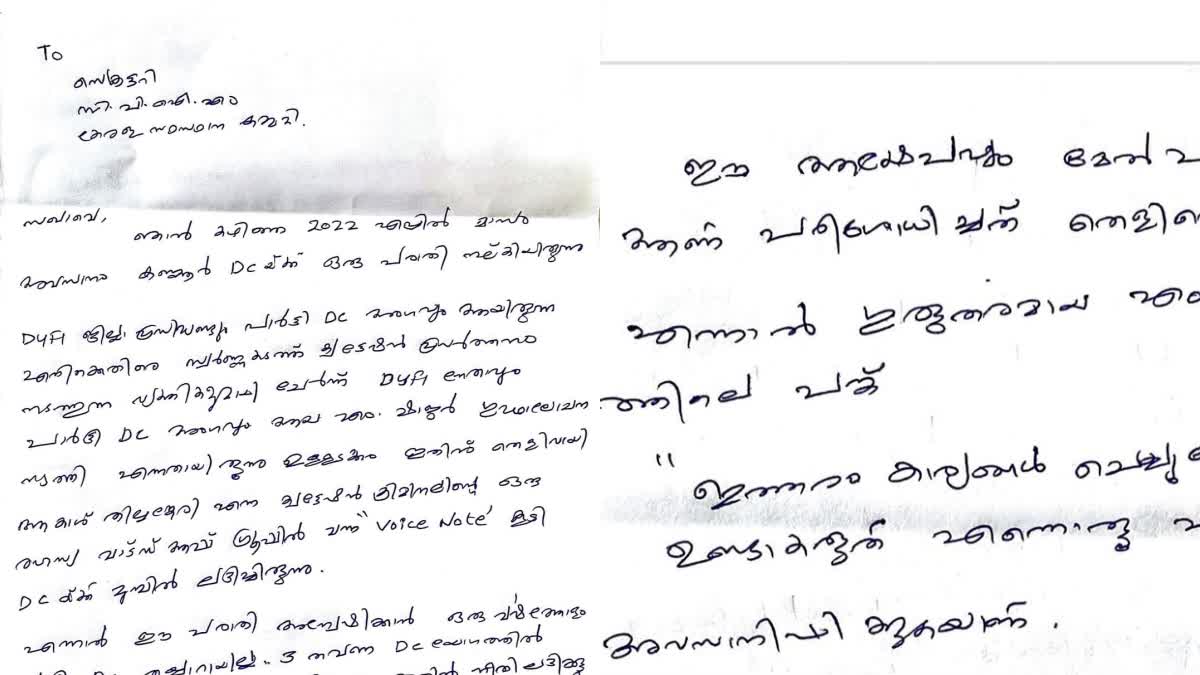 To
സെക്രട്ടറി
സി.പി.ഐ.എം
കേരള സംസ്ഥാന കമ്മറ്റി.
സഖാവെ,
ഞാൻ കഴിഞ്ഞ 2022 ഏപ്രിൽ മാസം
അവസാനം കണ്ണൂർ DC യ്ക്ക് ഒരു പരാതി നല്കിയിരുന്നു
DYFI ജില്ലാ പ്രസിഡണ്ടും പാർട്ടി DC അംഗവും ആയിരുന്ന
എനിക്കെതിരെ സ്വർണ്ണകടത്ത് ക്വട്ടേഷൻ പ്രവർത്തനം
നടത്തുന്ന വ്യക്തികളുമായി ചേർന്ന് DYFI നേതാവും
പാർട്ടി DC അംഗവും ആയ എം. ഷാജർ ഗൂഢാലോചന
നടത്തി എന്നതായിരുന്നു ഉള്ളടക്കം ഇതിന് തെളിവായി
ആകാശ് തില്ലങ്കേരി എന്ന ക്വട്ടേഷൻ ക്രിമിനലിന്റെ ഒരു
രഹസ്യ വാട്സ് ആപ്പ് ഗ്രൂപ്പിൽ വന്ന "Voice Note' കൂടി
DC യ്ക്ക് മുമ്പിൽ ലഭിച്ചിരുന്നു.
എന്നാൽ ഈ പരാതി അന്വേഷിക്കാൻ ഒരു വർഷത്തോളം
തയ്യാറായില്ല. 3 തവണ DC യോഗത്തിൽ
നീതി ലഭിക്കൂ
ഈ ആക്ഷേപവും മേൽ
ആണ് പരിശോധിച്ചത് തെളിവെ
എന്നാൽ ഗുരുതരമായ
ത്തിലെ പങ്ക്
"
ഇത്തരം കാര്യങ്ങൾ ചെയ്യു
ഉണ്ടാകരുത് എന്നൊരു
അവസാനിപ്പിക്കുകയാണ്.